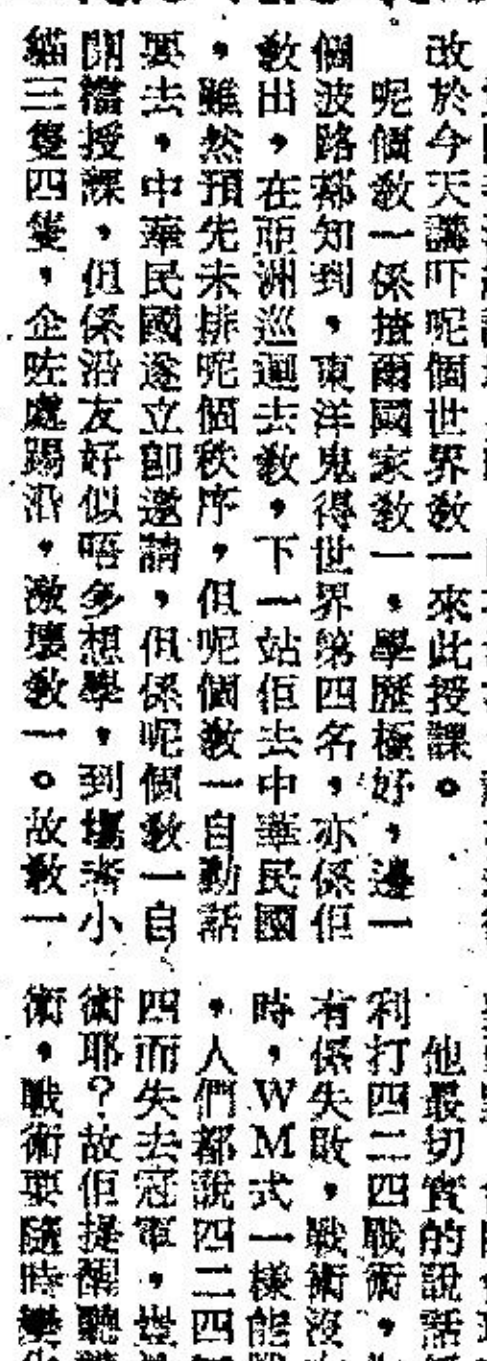 改於今天講吓呢個世界教一來此授課。
呢個教一係揸爾國家教一，學歷極好，邊一
個波路都知到，東洋鬼得世界第四名，亦係佢
教出，在亞洲巡迴去教，下一站佢去中華民國
，雖然預先未排呢個秩序，但呢個教一自動話
要去，中華民國遂立即邀請，但係呢個教一自
開檔授課，但係沿友好似唔多想學，到場者小
貓三隻四隻，企咗處踢沿，激壞教一。故教一
他最切實的說話
利打四二四戰術，
有係失敗，戰術沒
時，WM式一樣能
，人們都說四二四
四而失去冠軍，豈
術耶？故佢提醒聽
術，戰術要隨時變